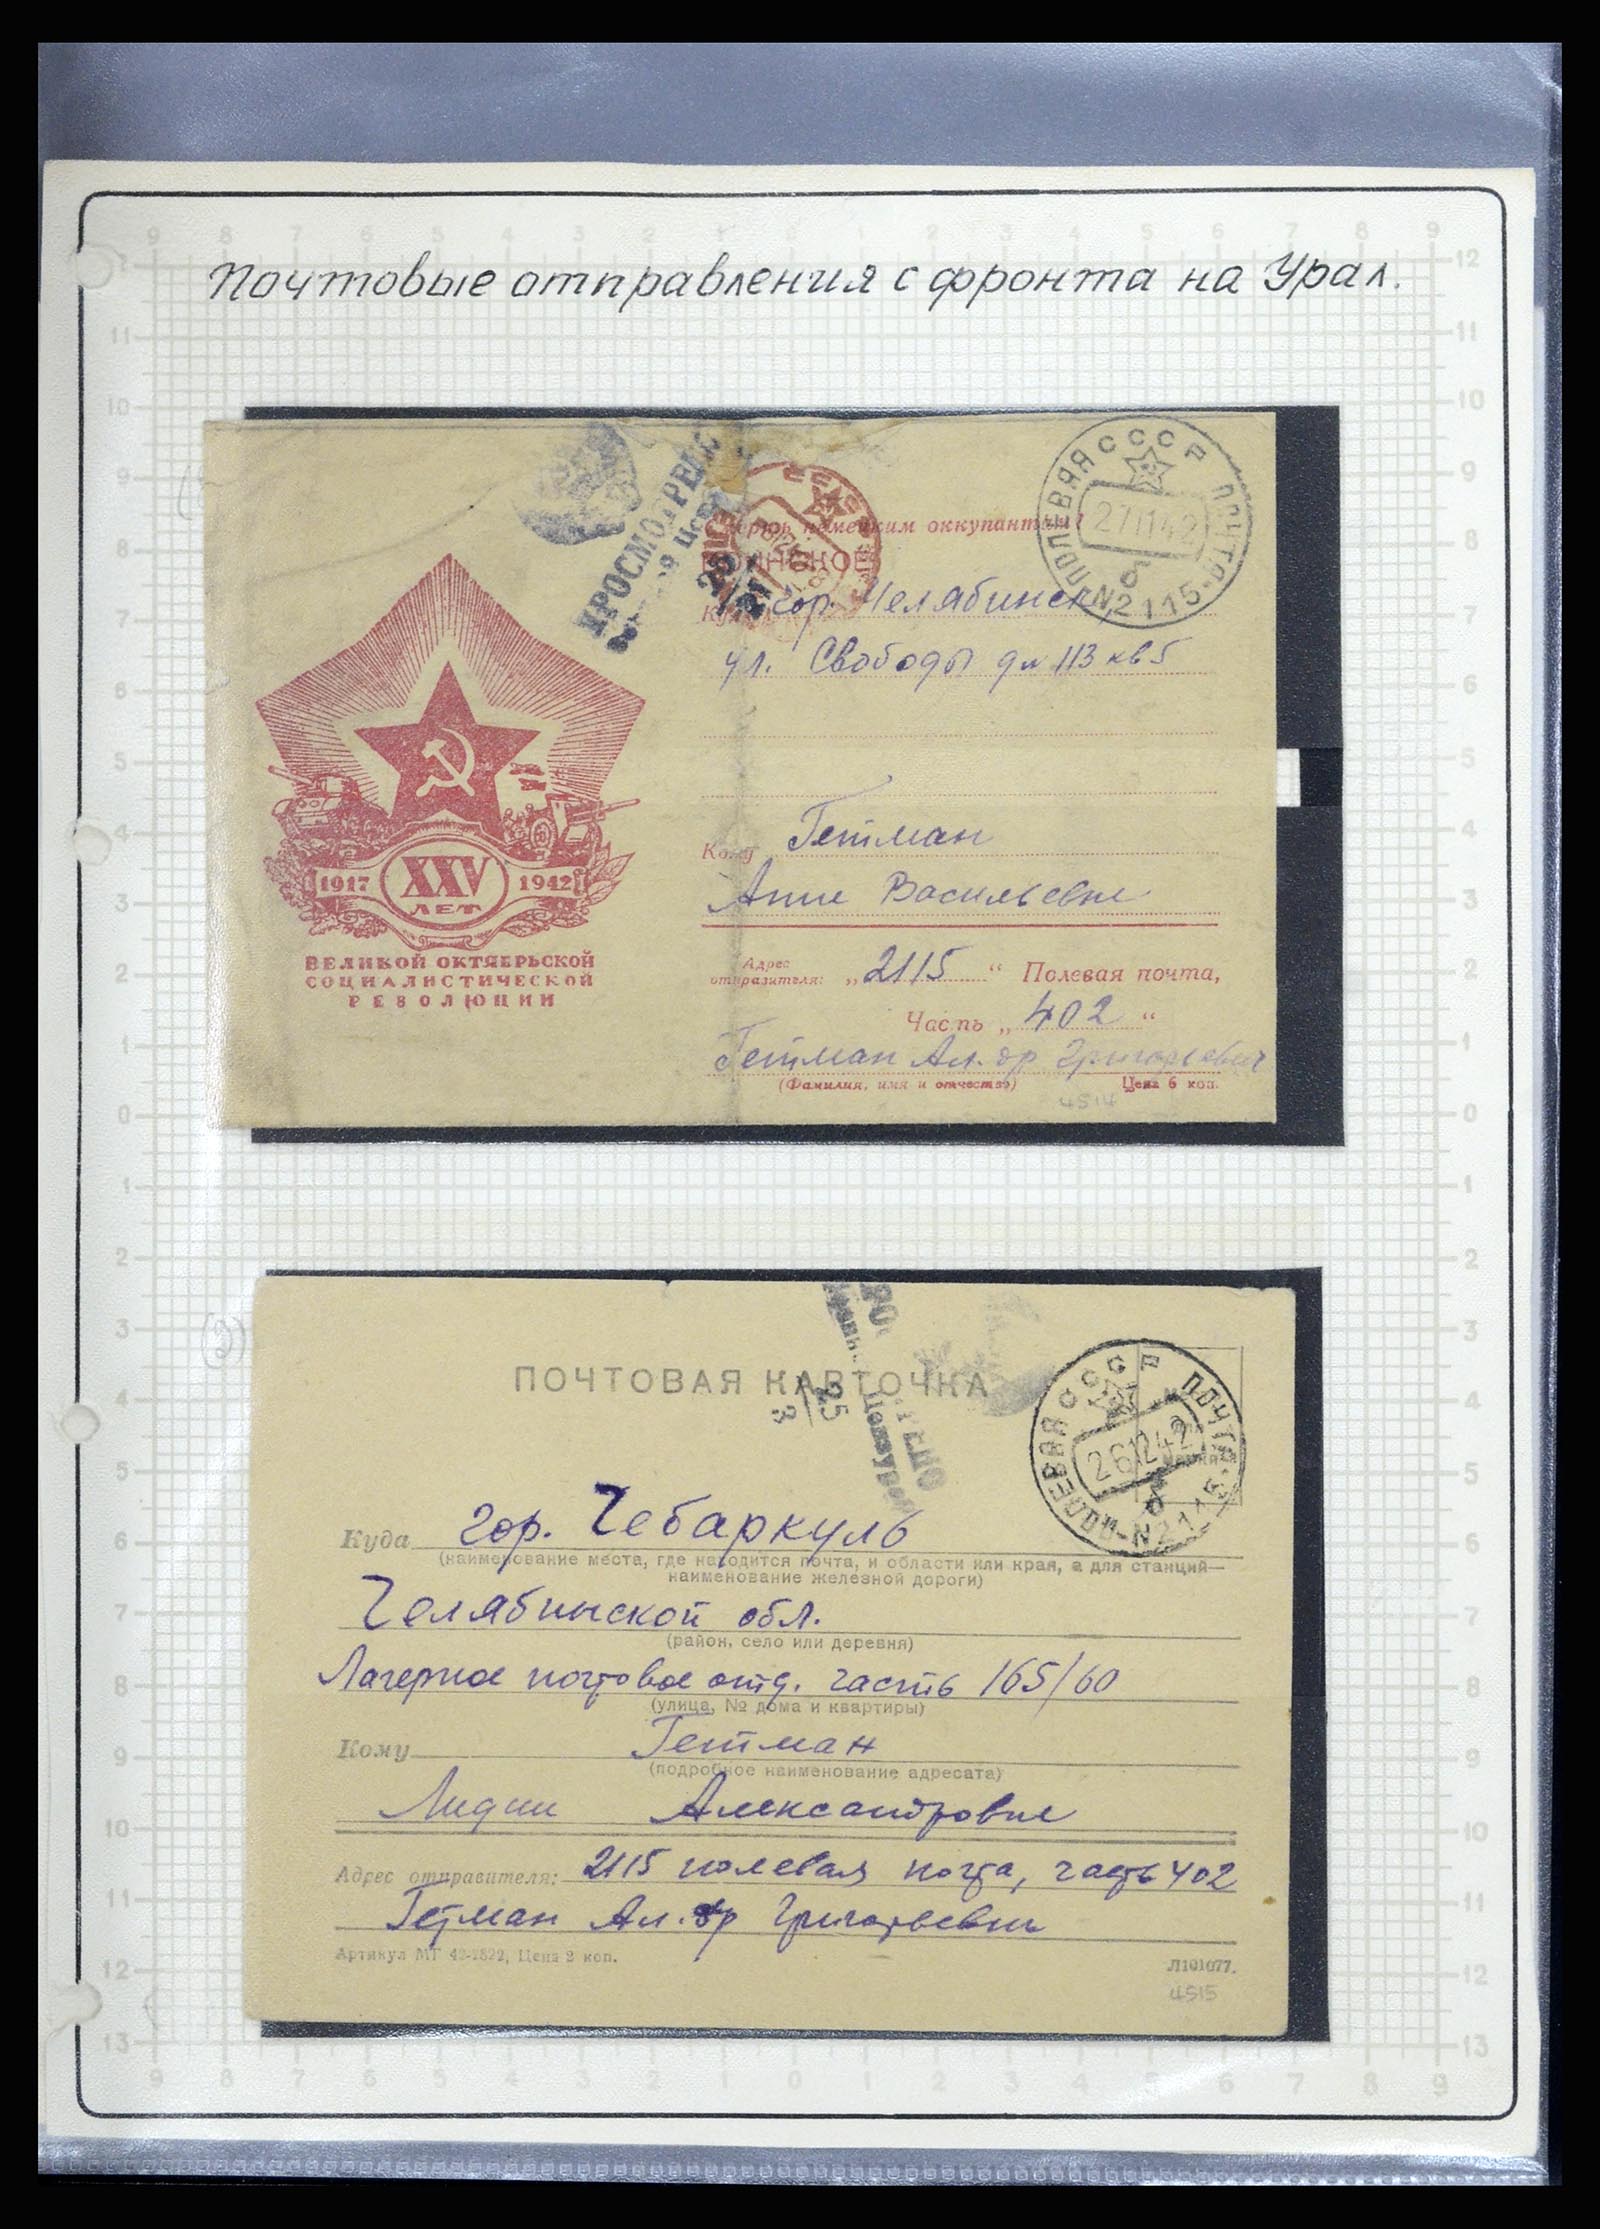 Почтовые отправления с фронта на Урал.
ПРОСМОТРЕНО
28
СССР
ПОЛЕВАЯ ПОЧТА
27 11 42
б
N2115
Смерть немецким оккупантам!
ВОИНСКОЕ
Куда гор. Челябинск,
ул. Свободы дм 113 кв 5
Кому Гетман
Анне Васильевне
1917 XXV 1942
ЛЕТ
ВЕЛИКОЙ ОКТЯБРЬСКОЙ
СОЦИАЛИСТИЧЕСКОЙ
РЕВОЛЮЦИИ
Адрес
отправителя: „2115“ Полевая почта,
Часть „402“
Гетман Ал.др Григорьевич
(Фамилия, имя и отчество) Цена 6 коп.
4514
(3)
ПОЧТОВАЯ КАРТОЧКА
25
3
СССР
ПОЛЕВАЯ ПОЧТА
26 12 42
б
N2115
Куда гор. Чебаркуль
(наименование места, где находится почта, и области или края, а для станций—
наименование железной дороги)
Челябинской обл.
(район, село или деревня)
Лагерное почтовое отд. часть 165/60
(улица, № дома и квартиры)
Кому Гетман
(подробное наименование адресата)
Лидии Александровне
Адрес отправителя: 2115 полевая почта, часть 402
Гетман Ал.др Григорьевич
Артикул МГ 42-1822, Цена 2 коп.
Л101077.
4515